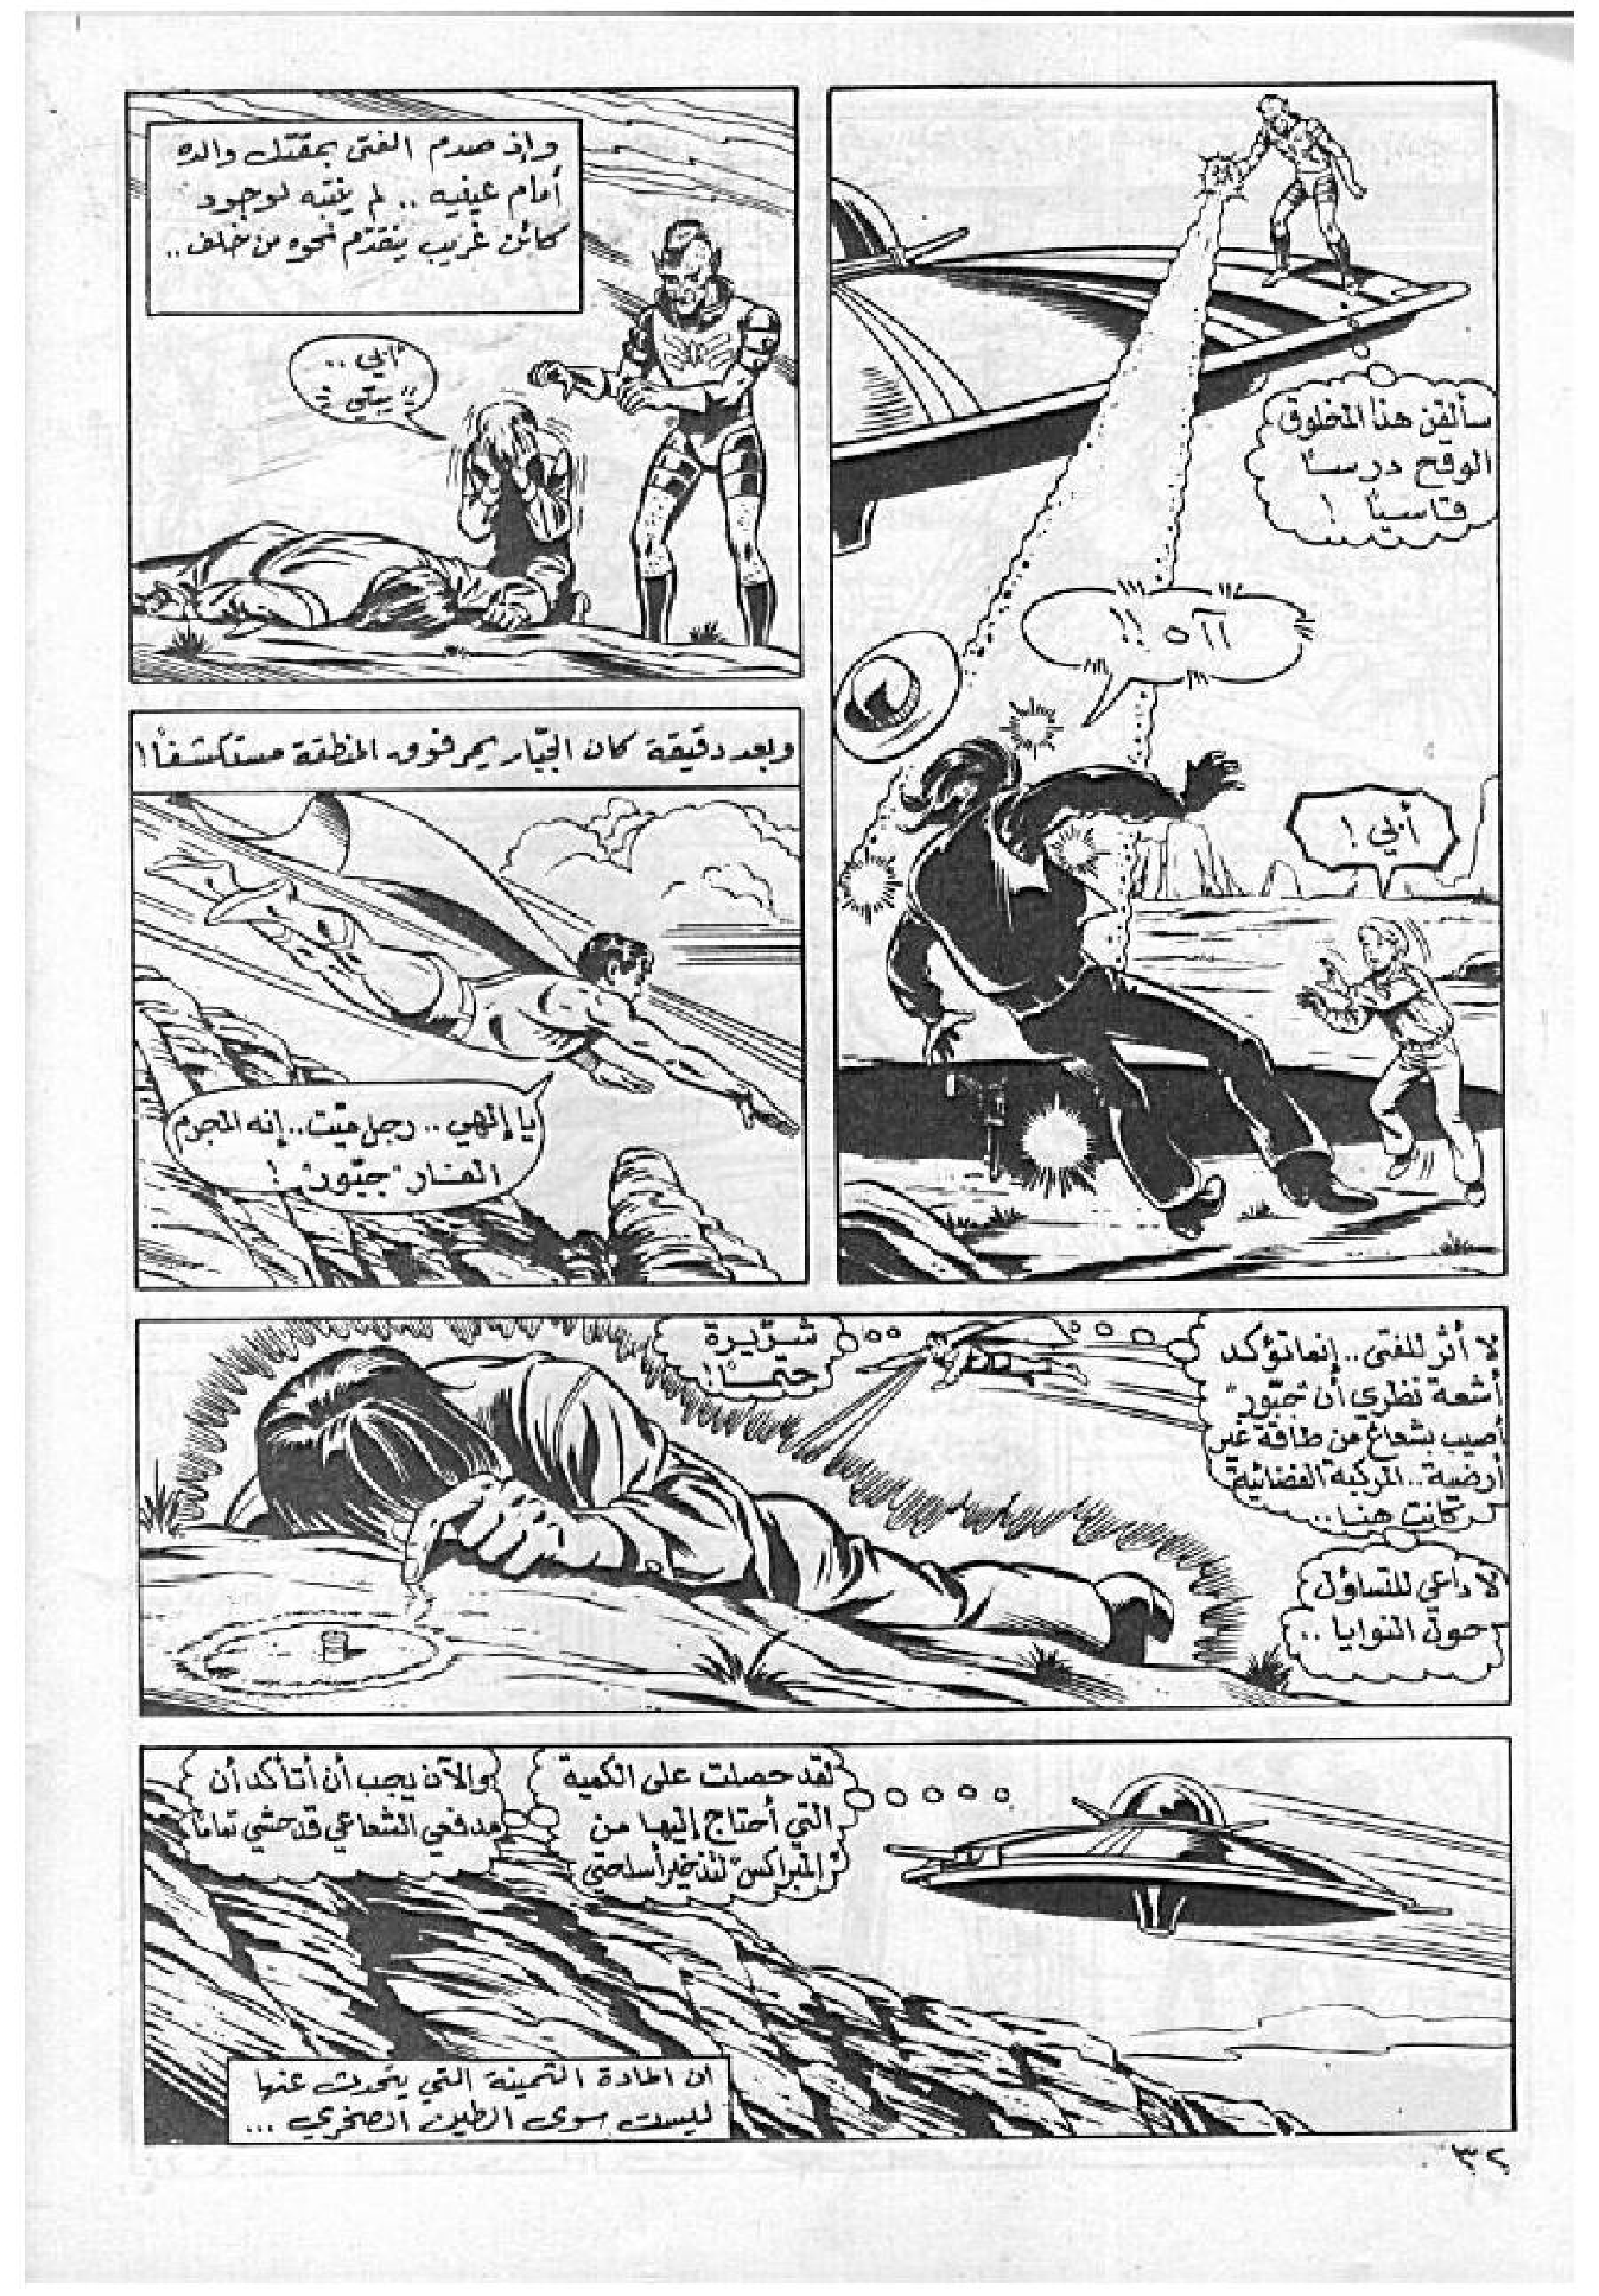 سألقن هذا المخلوق
الوقح درساً
قاسياً !
آآه !!
أبي !
وإذ صدم الفتى بمقتل والده
أمام عينيه .. لم ينتبه لوجود
كائن غريب يتقدم نحوه من خلف ..
أبي ..
وبعد دقيقة كان الجبّار يمر فوق المنطقة مستكشفاً !
يا إلهي .. رجل ميّت .. إنه المجرم
الفار "جبّور" !
لا أثر للفتى .. إنما تؤكد
أشعة نظري أن "جبّور"
أصيب بشعاع من طاقة غير
أرضية .. المركبة الفضائية
كانت هنا ..
لا داعي للتساؤل
حول النوايا ..
شرّيرة
حتماً !
لقد حصلت على الكمية
التي أحتاج إليها من
"البراكس" لتذخير أسلحتي
والآن يجب أن أتأكد أن
مدفعي الشعاعي قد حشي تماماً
ان المادة الثمينة التي يتحدث عنها
ليست سوى الطين الصخري ...
٣٢